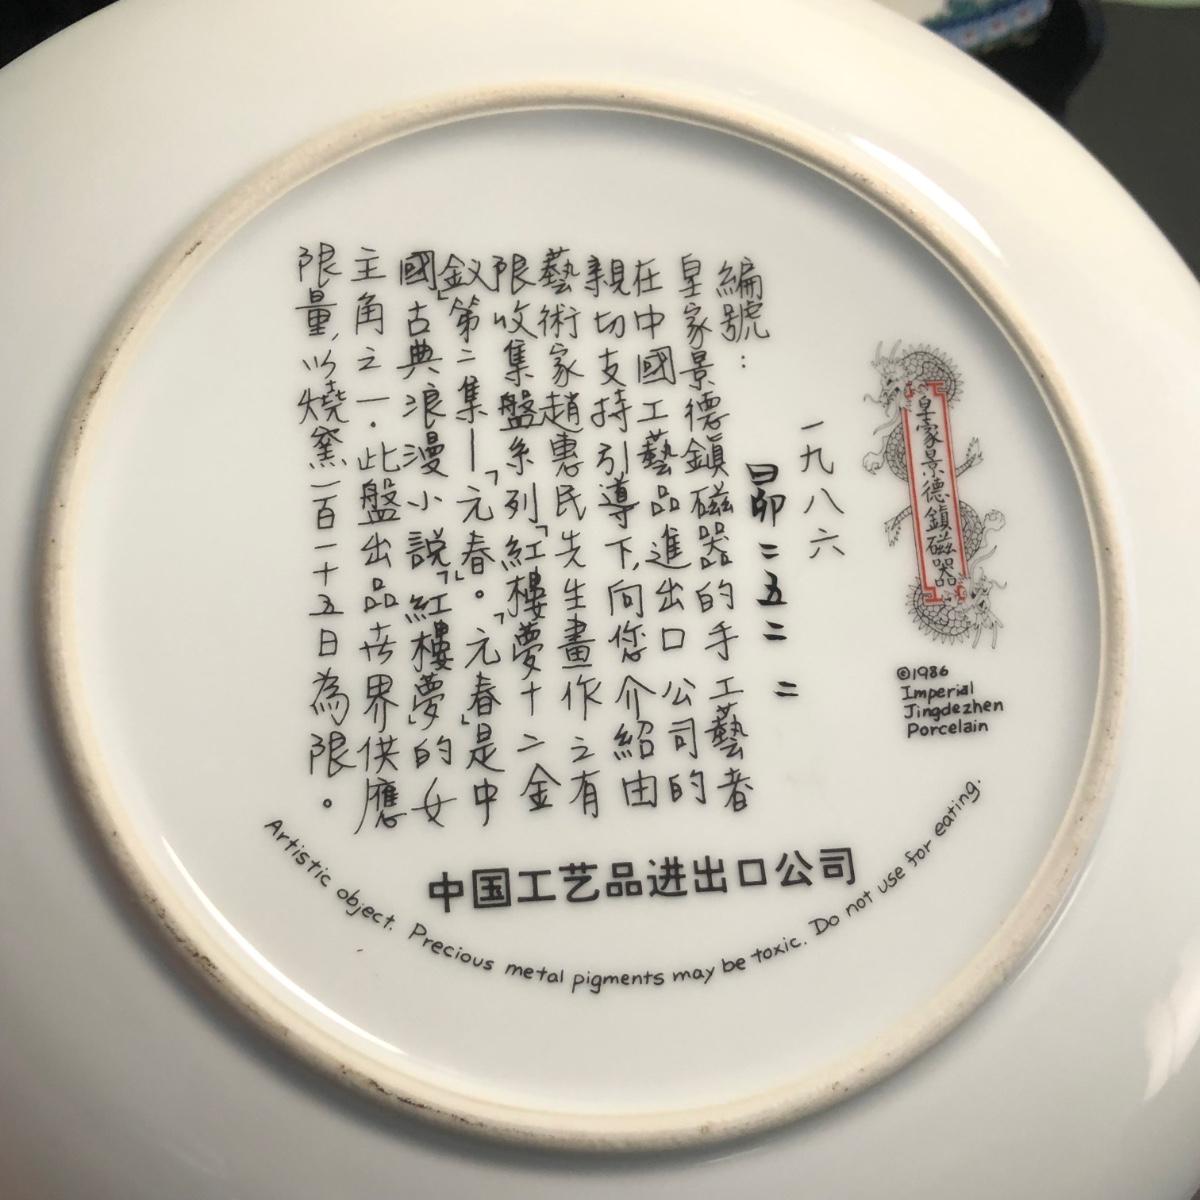 皇家景德鎮磁器
一九八六
編號：
昴二五二二
皇家景德鎮磁器的手工藝者
在中國工藝品進出口公司的
親切支持引導下,向您介紹由
藝術家趙惠民先生畫作之有
限收集盤系列「紅樓夢十二金
釵」第二集—「元春」。「元春」是中
國古典浪漫小說「紅樓夢」的女
主角之一．此盤出品世界供應
限量,以燒窯一百一十五日為限。
©1986
Imperial
Jingdezhen
Porcelain
中国工艺品进出口公司
Artistic object. Precious metal pigments may be toxic. Do not use for eating.